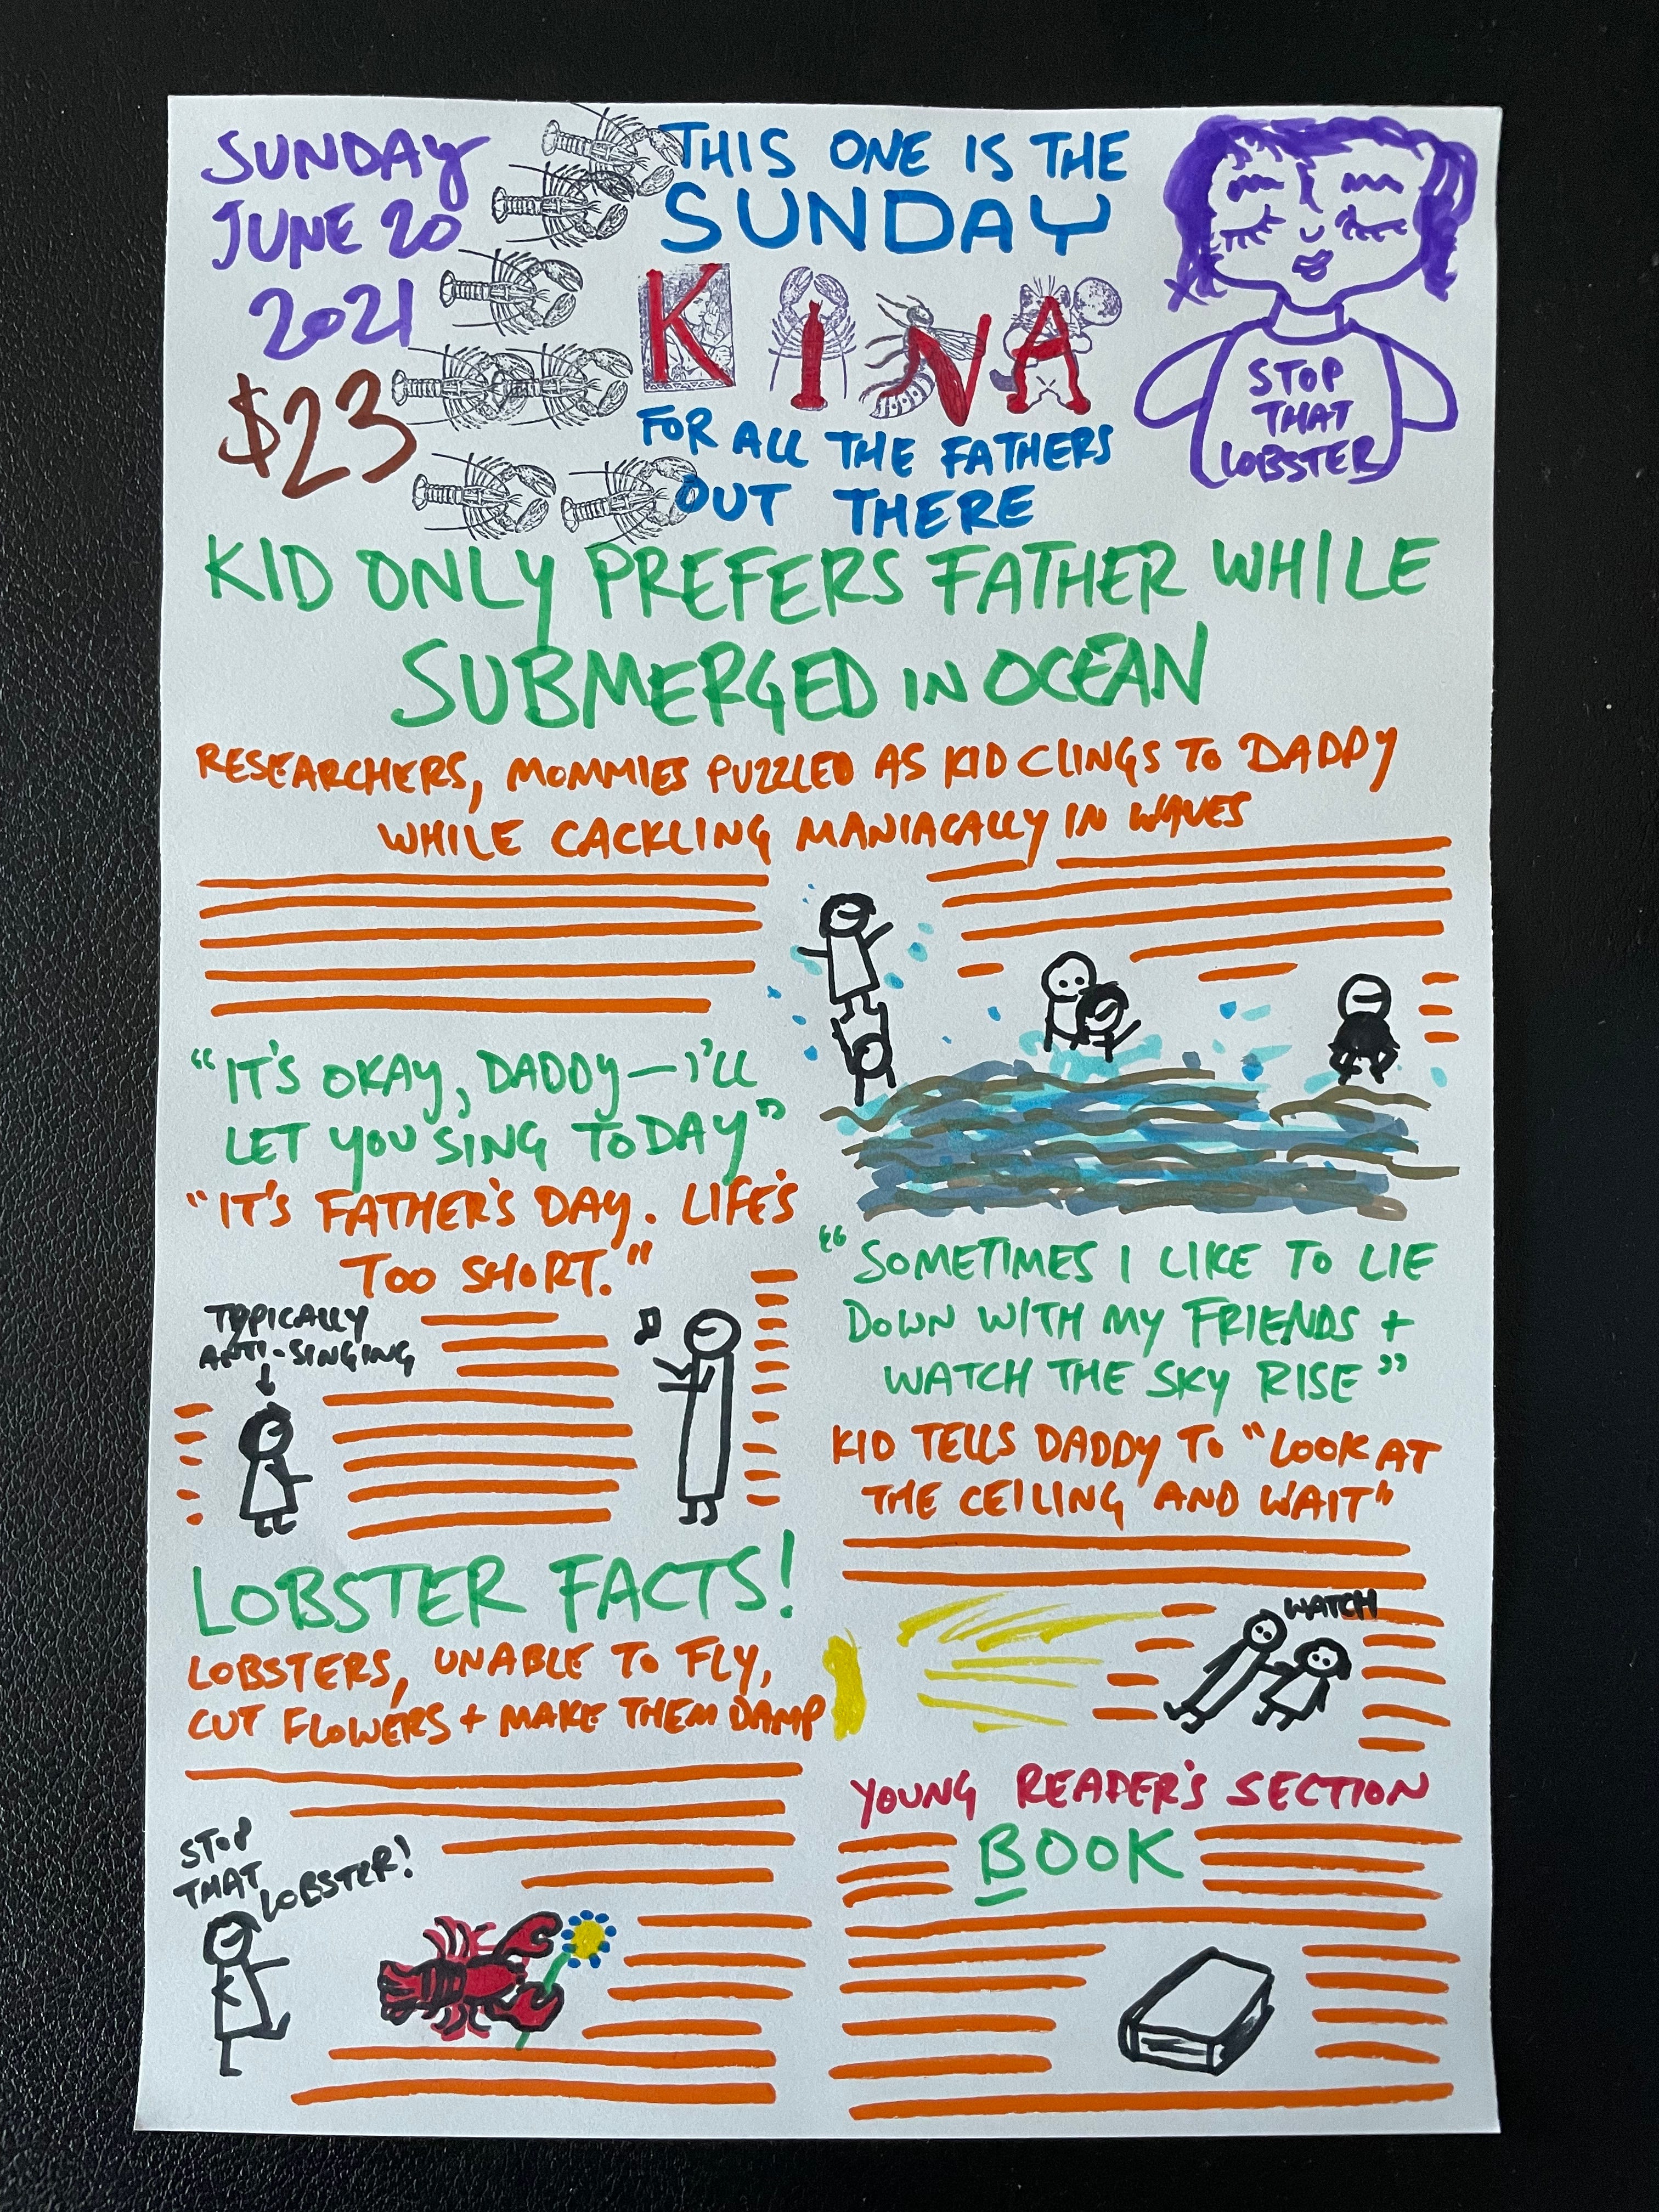 SUNDAY
JUNE 20
2021
$23
THIS ONE IS THE
SUNDAY
KINA
FOR ALL THE FATHERS
OUT THERE
STOP
THAT
LOBSTER
KID ONLY PREFERS FATHER WHILE
SUBMERGED IN OCEAN
RESEARCHERS, MOMMIES PUZZLED AS KID CLINGS TO DADDY
WHILE CACKLING MANIACALLY IN WAVES
"IT'S OKAY, DADDY—I'LL
LET YOU SING TODAY"
"IT'S FATHER'S DAY. LIFE'S
TOO SHORT."
TYPICALLY
ANTI-SINGING
"SOMETIMES I LIKE TO LIE
DOWN WITH MY FRIENDS +
WATCH THE SKY RISE"
KID TELLS DADDY TO "LOOK AT
THE CEILING AND WAIT"
WATCH
LOBSTER FACTS!
LOBSTERS, UNABLE TO FLY,
CUT FLOWERS + MAKE THEM DAMP
STOP
THAT
LOBSTER!
YOUNG READER'S SECTION
BOOK